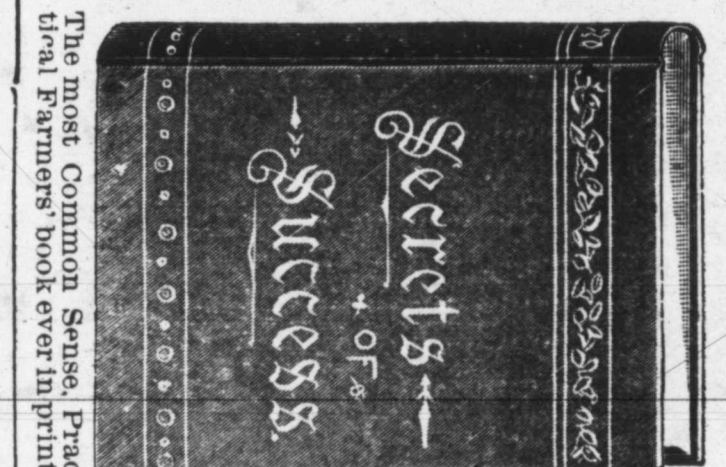 Secrets
OF
Success.
The most Common Sense, Prac
tical Farmers' book ever in print